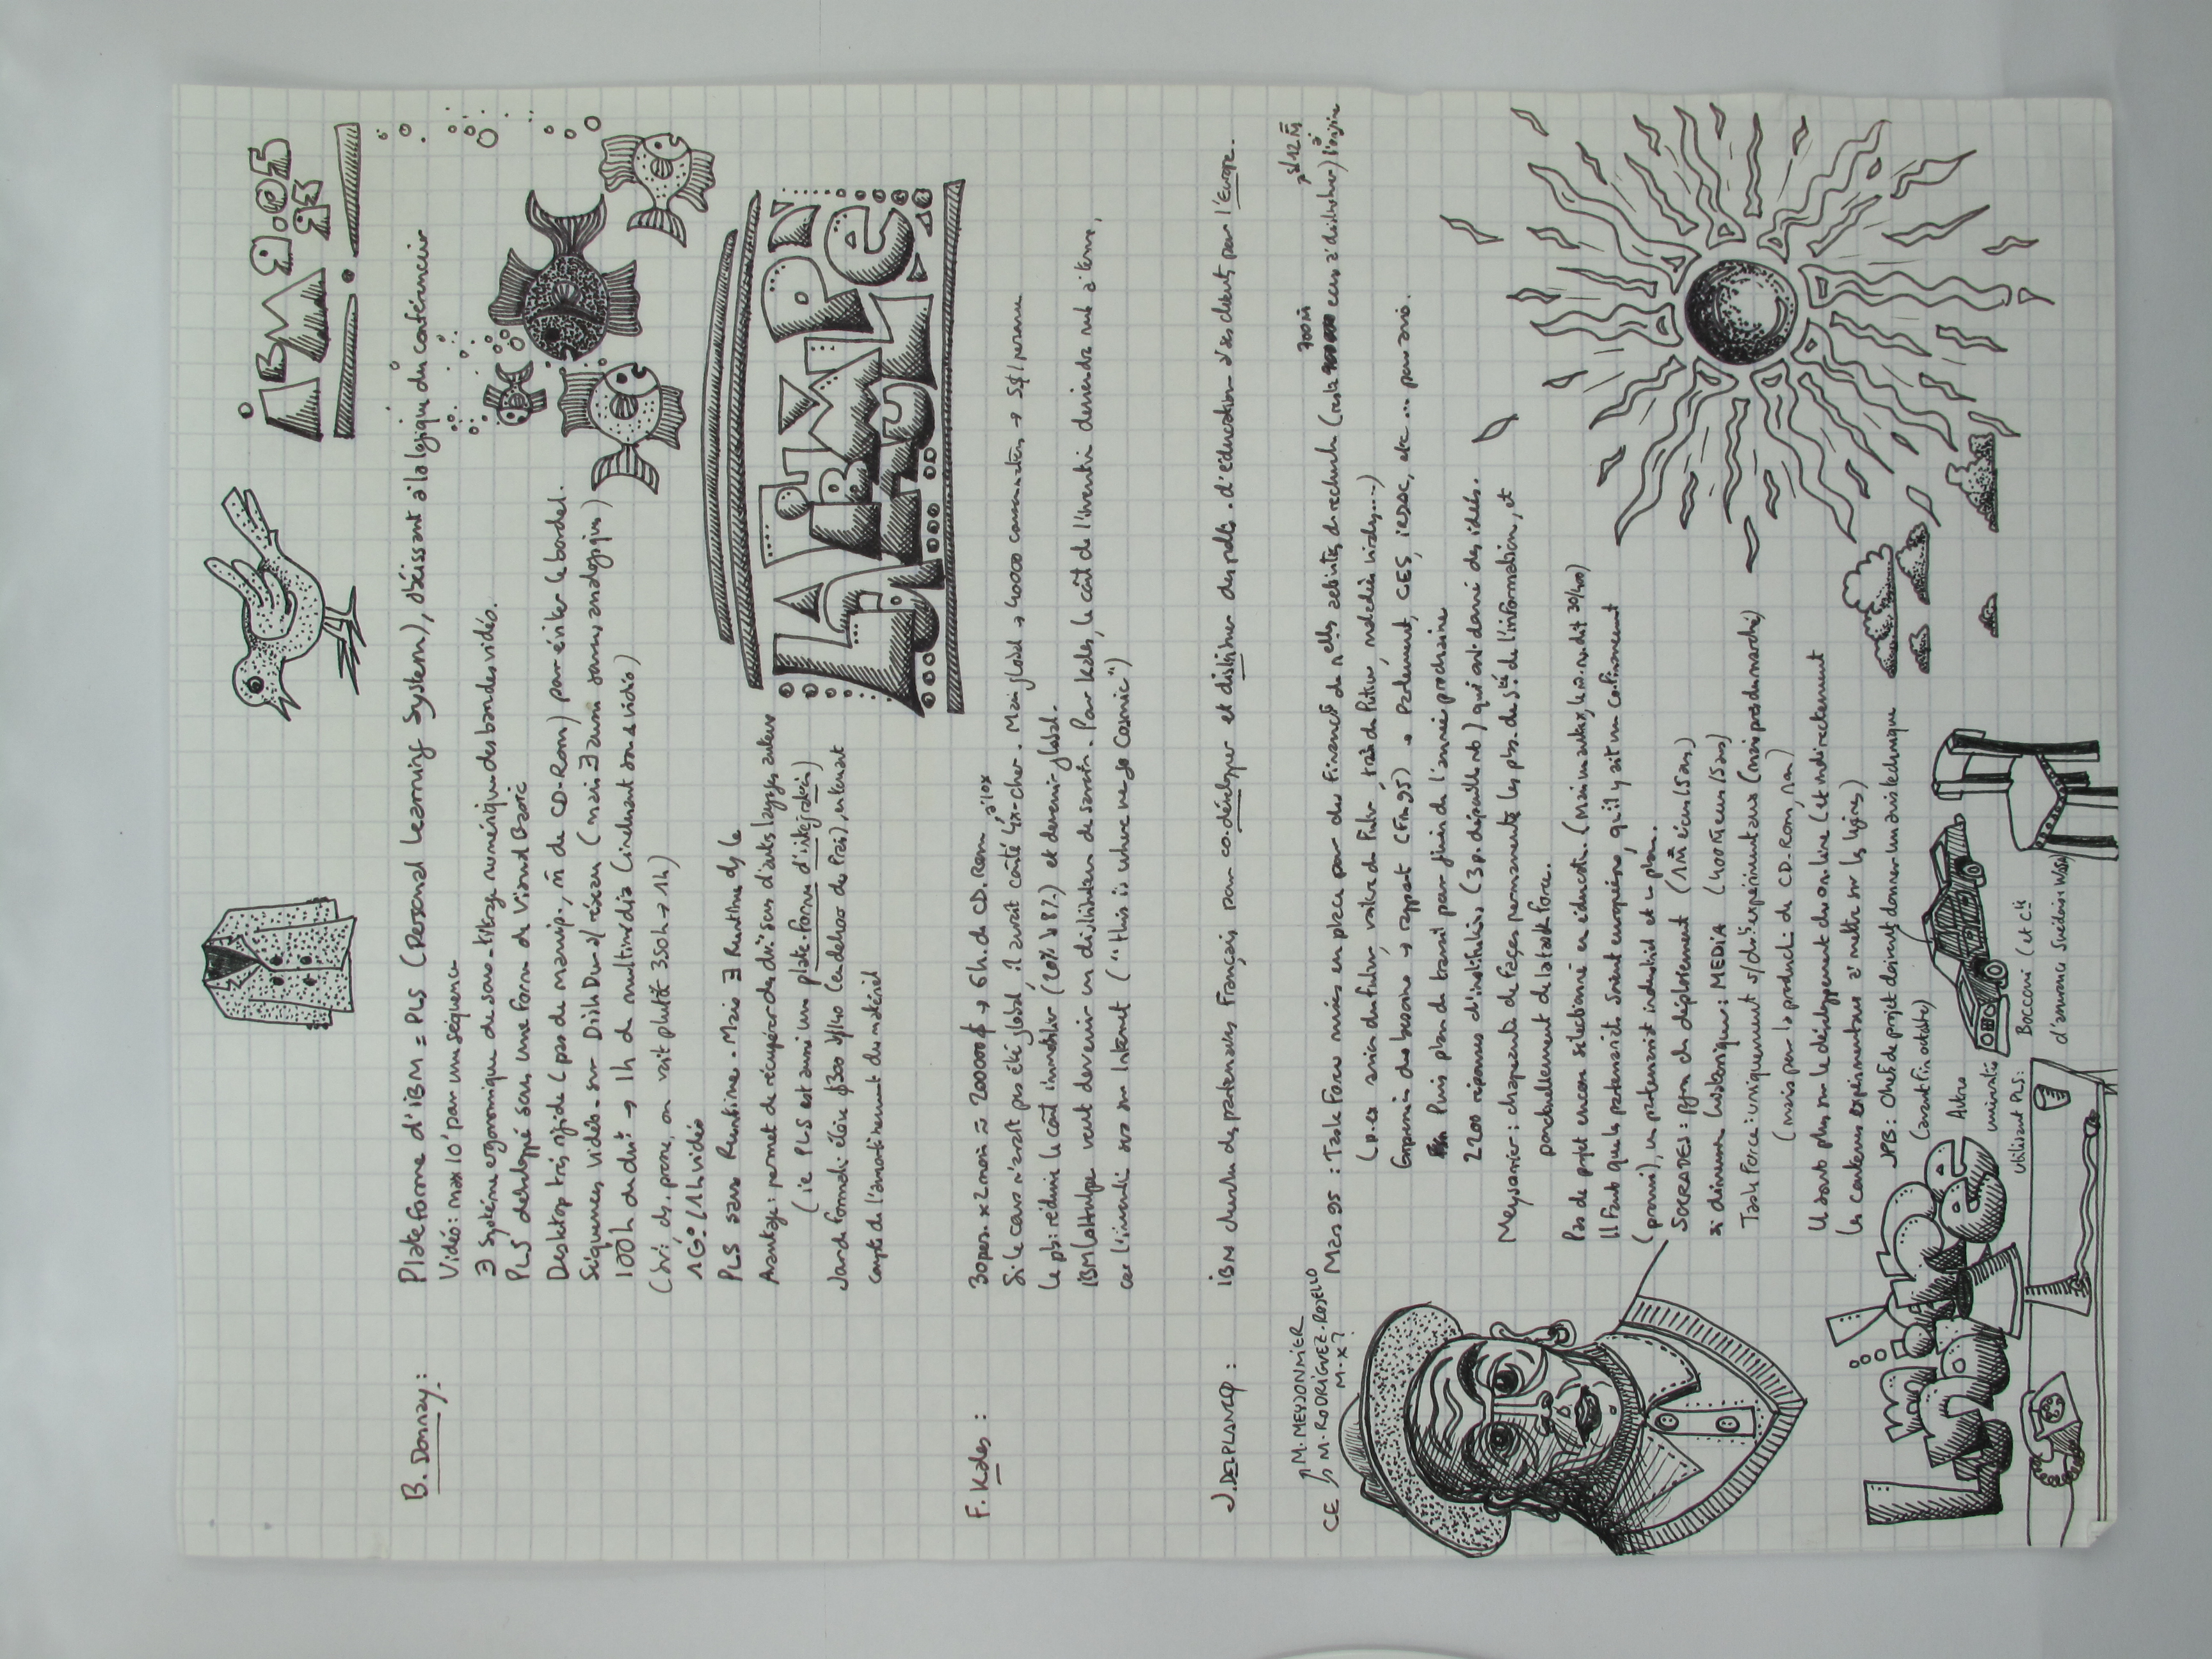 IBM 9.05 95
B. Donnay : Plateforme d'IBM = PLS (Personal Learning System), obéissant à la logique du conférencier
Vidéo : max 10' par une séquence
∃ système ergonomique de sous-titrage numérique des bandes vidéo.
PLS développé sous une forme de Visual Basic
Desktop très rigide (pas de manip., m de CD-Rom) pour éviter le bordel.
Séquences vidéo sur Disk Dur s/ réseau (mais ∃ aussi analogique)
100h de → 1h de multimédia (incluant son & vidéo)
on voit plutôt 350h → 1h)
1G° / 1h vidéo
PLS sans Runtime. Mais ∃ Runtime ds le
Avantage : permet de récupérer des d'autres langages auteurs
(ie PLS est aussi une plate-forme d'intégration)
$300 $140 (en dehors de frais), en tenant
compte de l'amortissement du matériel
LA HULPE
IBM
F. Kales : 30 pers. x 2 mois ≈ 200000 $ → 6h. de CD.Rom à 10x
Si le cours n'avait pas été global, il aurait coûté 4x + cher. Mais global → 40000 → 5$ / personne
Le pb : réduire le coût immobilier (20% à 8%) et devenir global.
IBM/La Hulpe veut devenir un distributeur de savoir. Pour Kales, le coût de l'investi deviendra nul à terme,
car l'investi sur Internet ("this is where we go Cosmic")
J. DELPLANCQ : IBM cherche des partenaires Français pour co-développer et distribuer des pdts. d'éducation à ses clients, par l'Europe.
CE M. MEYSONNIER
M. RODRIGUEZ-ROSELLO
M. X ?
Mars 95 : Task Force mises en place pour du financt de nelles activités de recherche (reste 700M écus à distribuer) à l'origine
(p.ex avion du futur, voiture du futur, train du futur, maladies virales...)
Examen des besoins → rapport (fin 95) → Parlement, CES, IRDAC, etc... pour avis.
Puis plan de travail pour juin de l'année prochaine
2200 réponses d'institutions (3 p. ) qui ont donné des idées.
Meysonnier : chapeaute de façon permanente les pbs. de Sté de l'information, et
ponctuellement de la task force.
Pas de projet encore sélectionné en éducation. (Mais 30/400)
Il faut que le partenariat soient européens, qu'il y ait un cofinancement
(promis), un partenariat industriel et un plan.
SOCRATES : pgm de déploiement (1M écus/5ans)
∃ dimension historique : MEDIA (400M écus/5ans)
Task Force : uniquement s/ expérimentaux (mais près du marché)
(mais pour la product. de CD.Rom, non)
Ils sont plus sur le développement du on line (et indirectement
les contenus expérimentaux à mettre sur les lignes)
JPB : Chef de projet doivent donner un avis technique
(avant fin octobre)
Autre
université
utilisant PLS :
Bocconi (et Cie
d'assurance Suédoise Wasa)